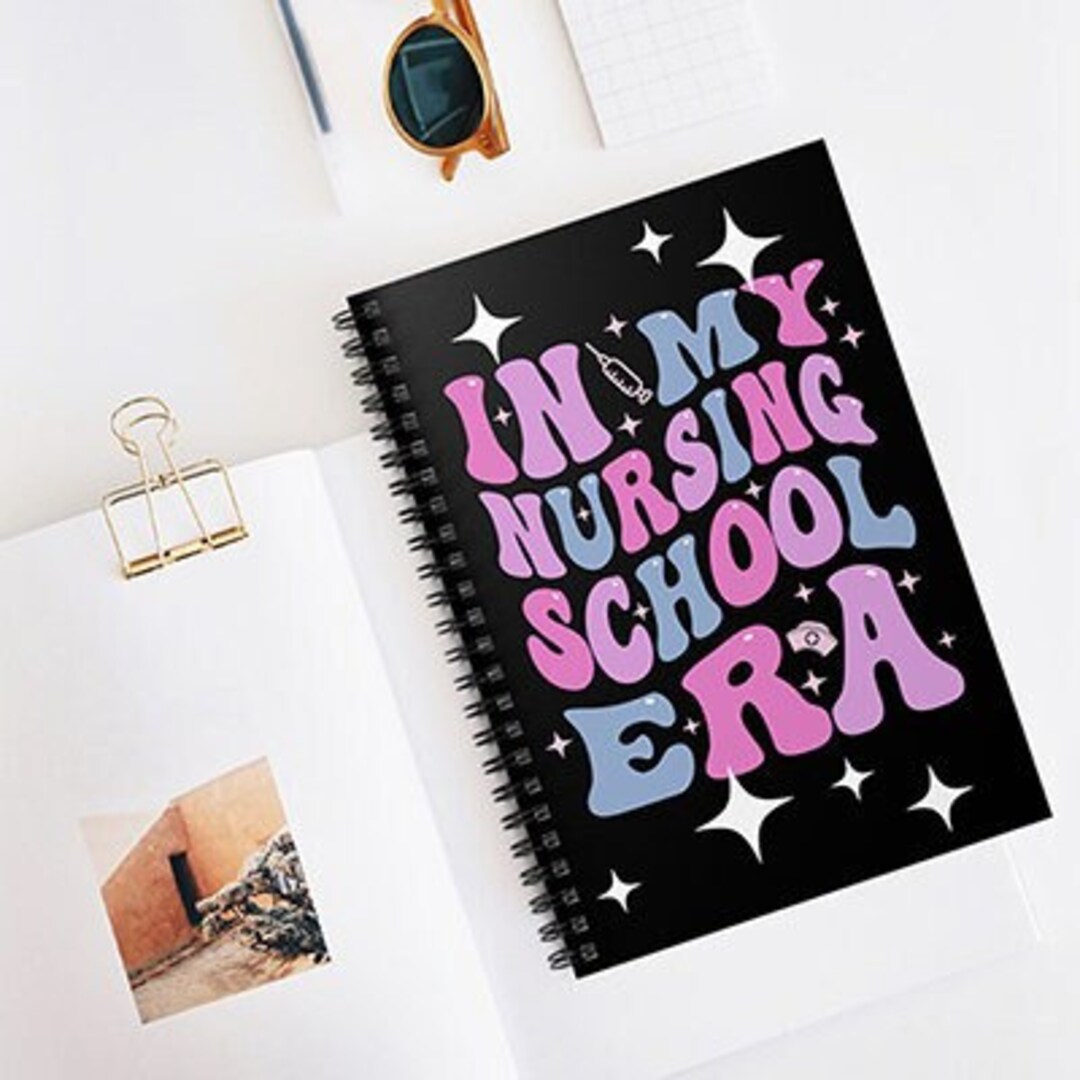 IN MY
NURSING
SCHOOL
ERA